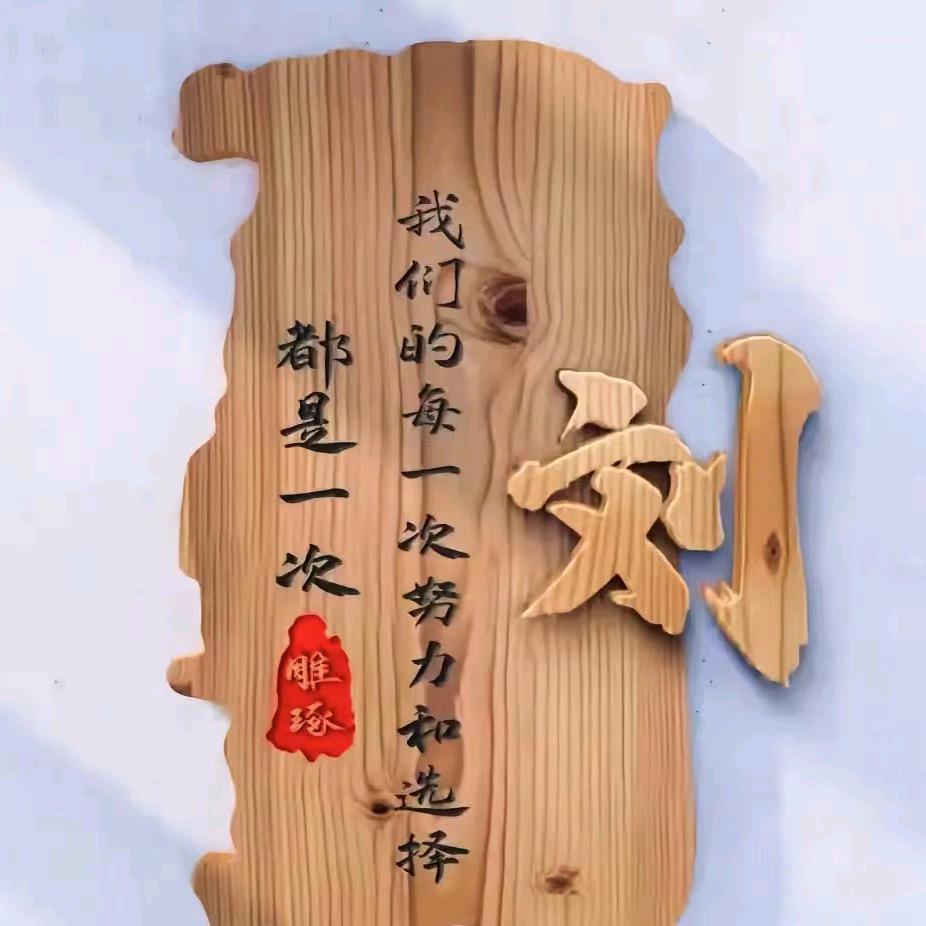 刘
我们的每一次努力和选择
都是一次
雕琢